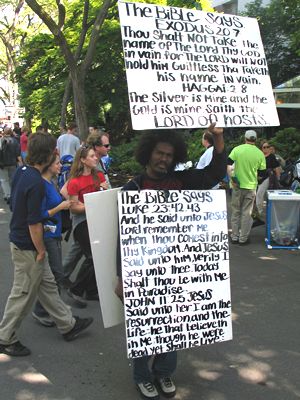 The BIBLE SAYS
EXODUS 20 7
Thou Shalt NOT Take the
name OF The Lord Thy GOD
in vain for The LORD will NOT
hold him Guiltless Tha Taketh
his name IN vain.
HAGGAI 2 8
The Silver is Mine and the
Gold is mine Saith the
LORD OF hosts.
The BIBLE SAYS
LUKE 23:42 43
And he said unto JESUS
Lord remember Me
when thou comest into
Thy Kingdom. And JESUS
Said unto him, verily I
say unto thee. Today
Shalt thou be with Me
in Paradise.
JOHN 11 25 JESUS
Said unto her I am the
resurrection, and the
Life: he that believeth
in Me, though he were
dead, yet Shall he Live: